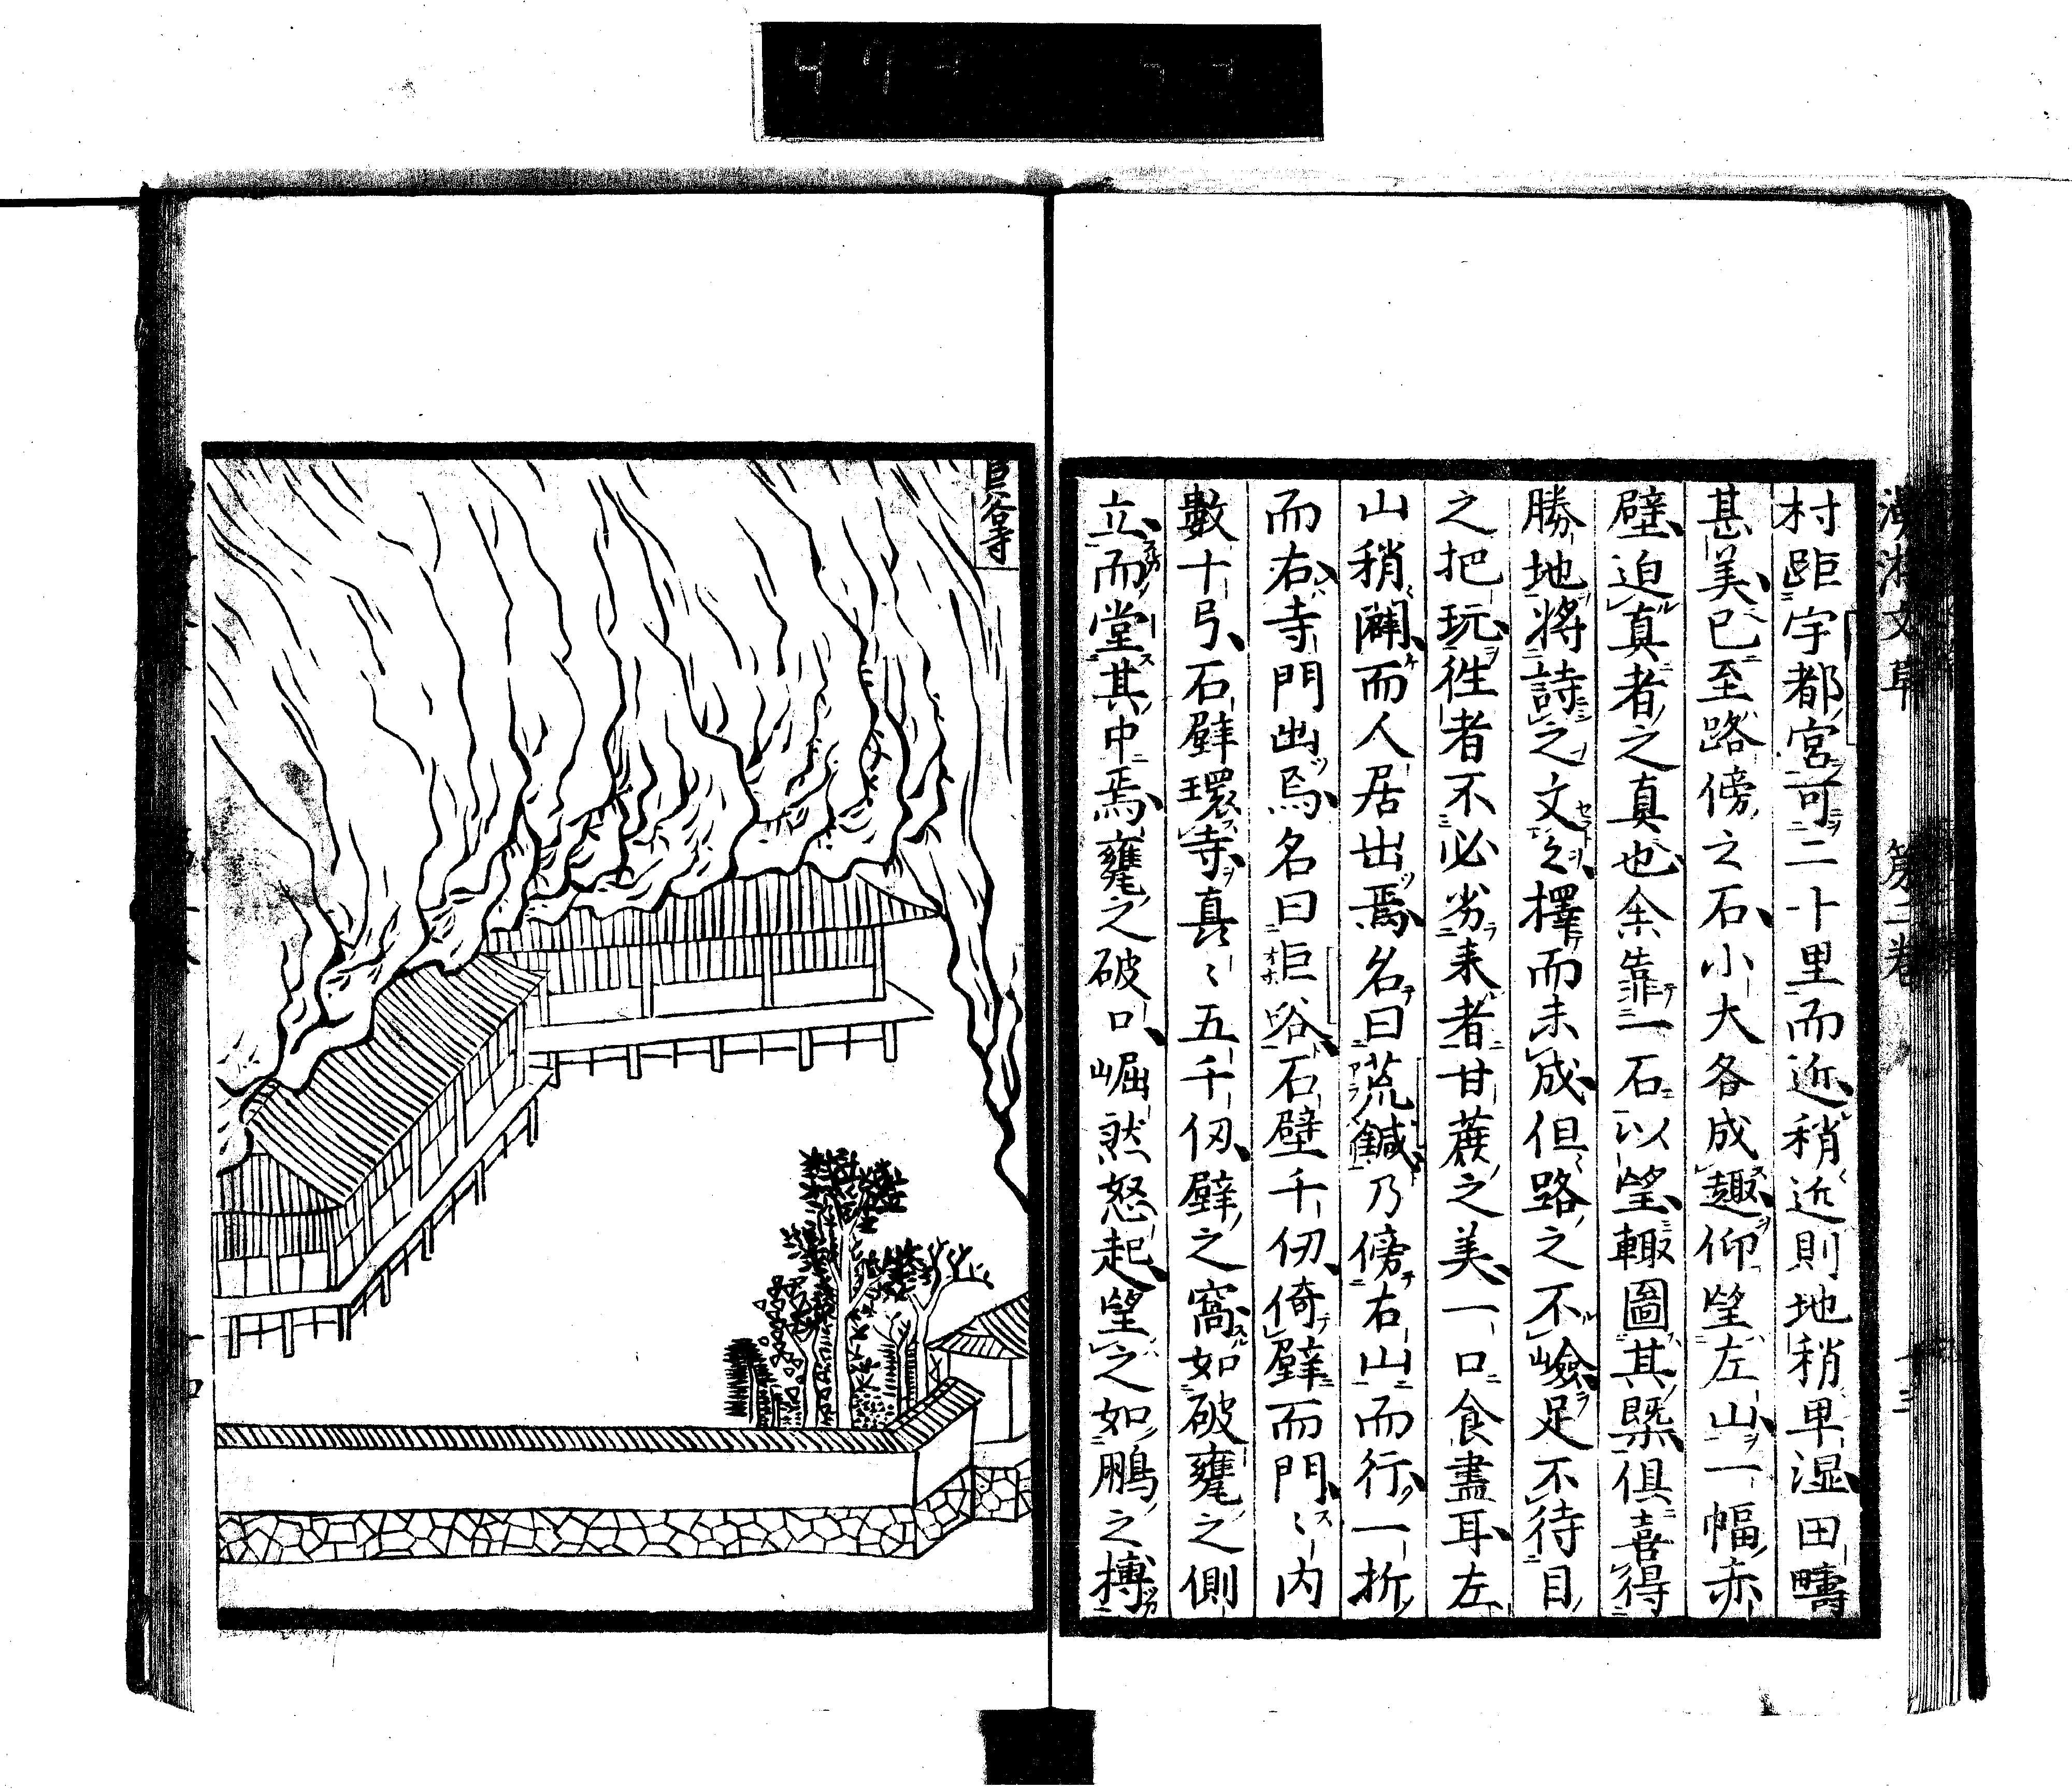 村距宇都宮可二十里而近稍近則地稍卑湿田疇
甚美已至路傍之石小大各成趣仰望左山一幅赤
壁迫真者之真也余靠一石以望輙圖其槩俱喜得
勝地將詩之文之擇而未成但路之不嶮足不待目
之把玩徃者不必劣来者甘蔗之美一口食盡耳左
山稍闢而人居出焉名曰荒鍼乃傍右山而行一折
而右寺門出焉名曰巨谷石壁千仞倚壁而門〻内
數十弓石壁環寺真〻五千仭壁之窩如破甕之側
立而堂其中焉甕之破口崛然怒起望之如鵬之搏
巨谷寺
文草 第二卷 十三